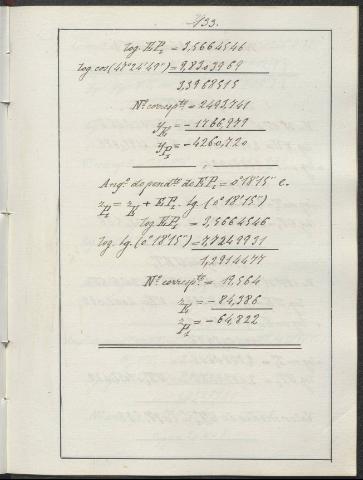 133.
log. EP₁ = 3,5664546
log cos (47°24'49") = 9,8303969
3,3968515
Nº corresp.te = 2493,741
y E = - 1766,979
y P₁ = - 4260,720
Ang.º do pend.te do EP₁ = 0°18'15" e.
z P₁ = z E + EP₁ . tg. (0°18'15")
log EP₁ = 3,5664546
log. tg. (0°18'15") = 7,7249931
1,2914477
Nº corresp.te = 19,564
z E = - 84,386
z P₁ = - 64,822